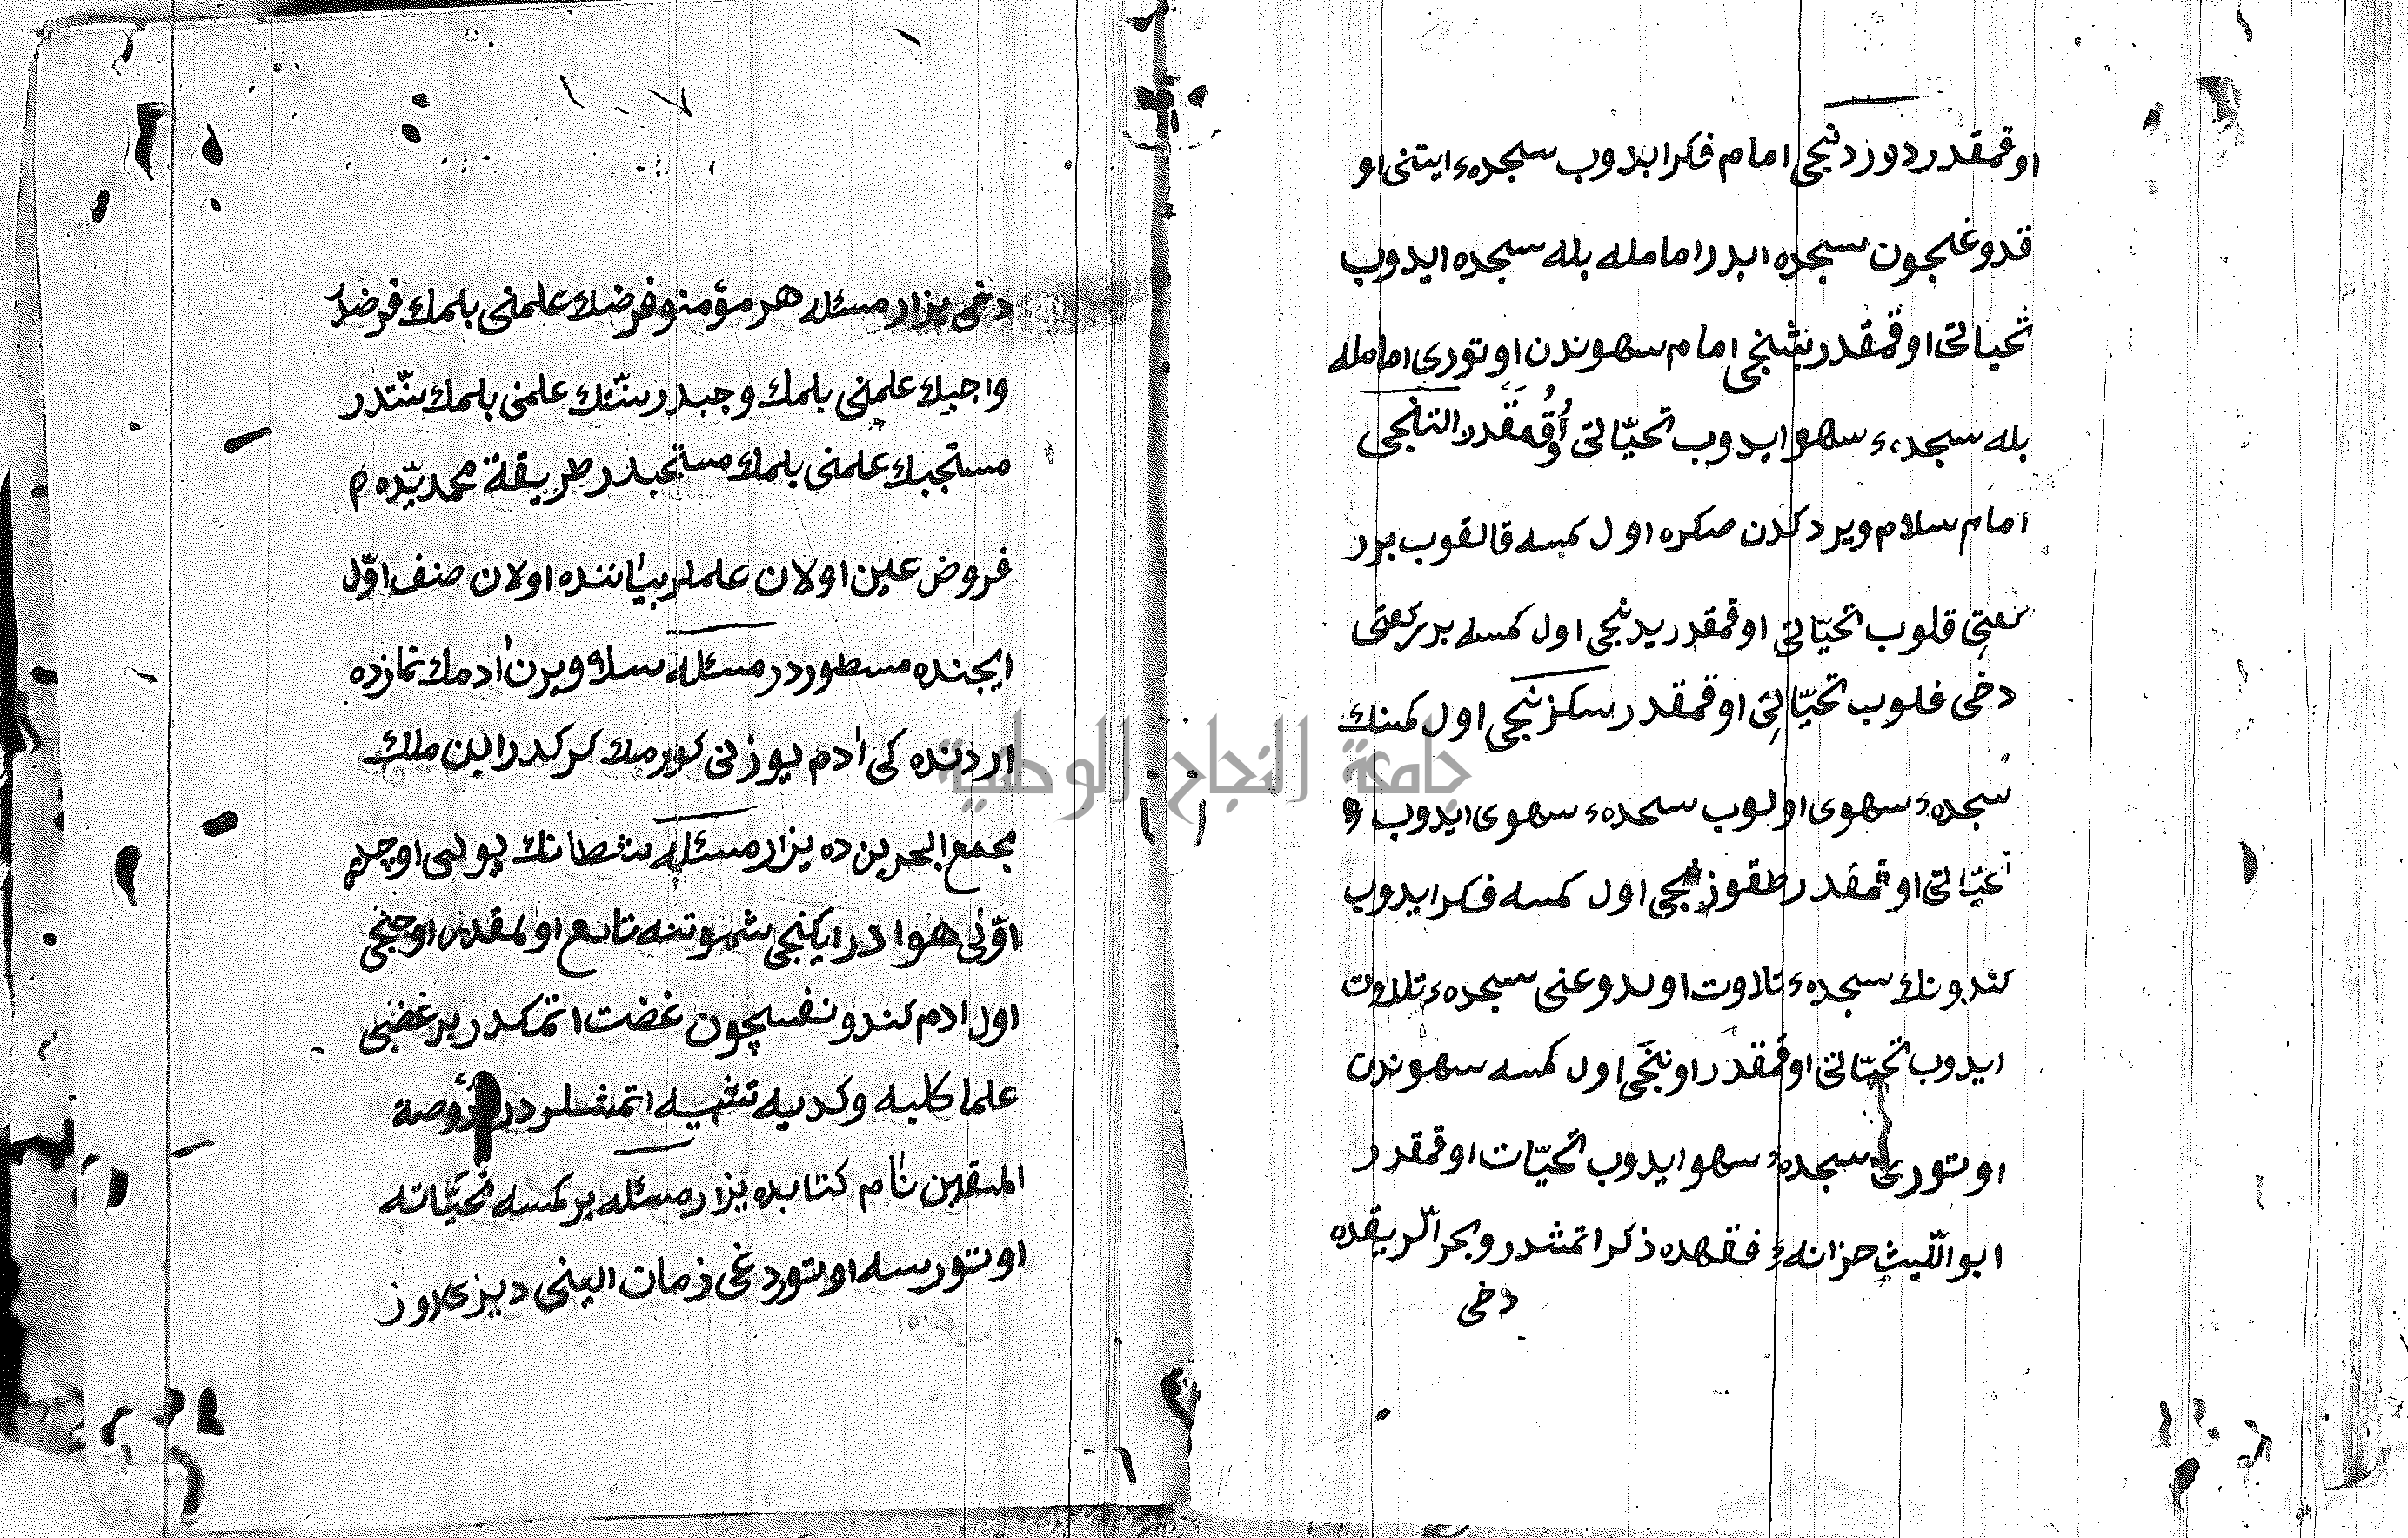 اوقمقدر دوردنجى امام فكر ايدوب سجدهء ايتنى او
قدوغيچون سجده ايدر امامله بله سجده ايدوب
تحياتى اوقمقدر بشنجى امام سهوندن اوتورى امامله
بله سجدهء سهو ايدوب تحيّاتى اوقمقدر التنجى
امام سلام ويردكدن صكره اول كمسه قالقوب برر
كعتى قلوب تحيّاتى اوقمقدر يدنجى اول كمسه بر ركعتى
دخى قلوب تحيّاتى اوقمقدر سكزنجى اول كمسنك
سجدهء سهوى اولوب سجدهء سهوى ايدوب
تحيّاتى اوقمقدر طقوزنجى اول كمسه فكر ايدوب
كندونك سجدهء تلاوت اولدوغنى سجدهء تلاوت
ايدوب تحيّاتى اوقمقدر اوننجى اول كمسه سهوندن
اوتورى سجدهء سهو ايدوب تحيّات اوقمقدر
ابو اللّيث خزانهء فقهده ذكر اتمشدر و بحر الّريقده
دخى
دخى يزار مسئله هر مؤمنه فرضك علمنى بلمك فرضدر
واجبك علمنى بلمك وجبدر سنّتك علمنى بلمك سنّتدر
مستحبك علمنى بلمك مستحبدر طريقة محمديّده م
فروض عين اولان علملر بياننده اولان صنف اوّل
ايچنده مسطوردر مسئله سلام ويرن ادمك نمازده
اردنده كى ادم يوزنى كورمك كركدر ابن ملك
مجمع البحرين ده يزار مسئله شيطانك يولى اوچدر
اوّلى هوا در ايكنجى شهوتنه تابع اولمقدر اوچنجى
اول ادم كندو نفسيچون غضب اتمكدر بر غضبى
علما كلبه وكديه تشبيه اتمشلردر روضة
المتقين نام كتابده يزار مسئله بر كمسه تحيّاته
اوتورسه اوتوردغى زمان الينى ديزى اوز